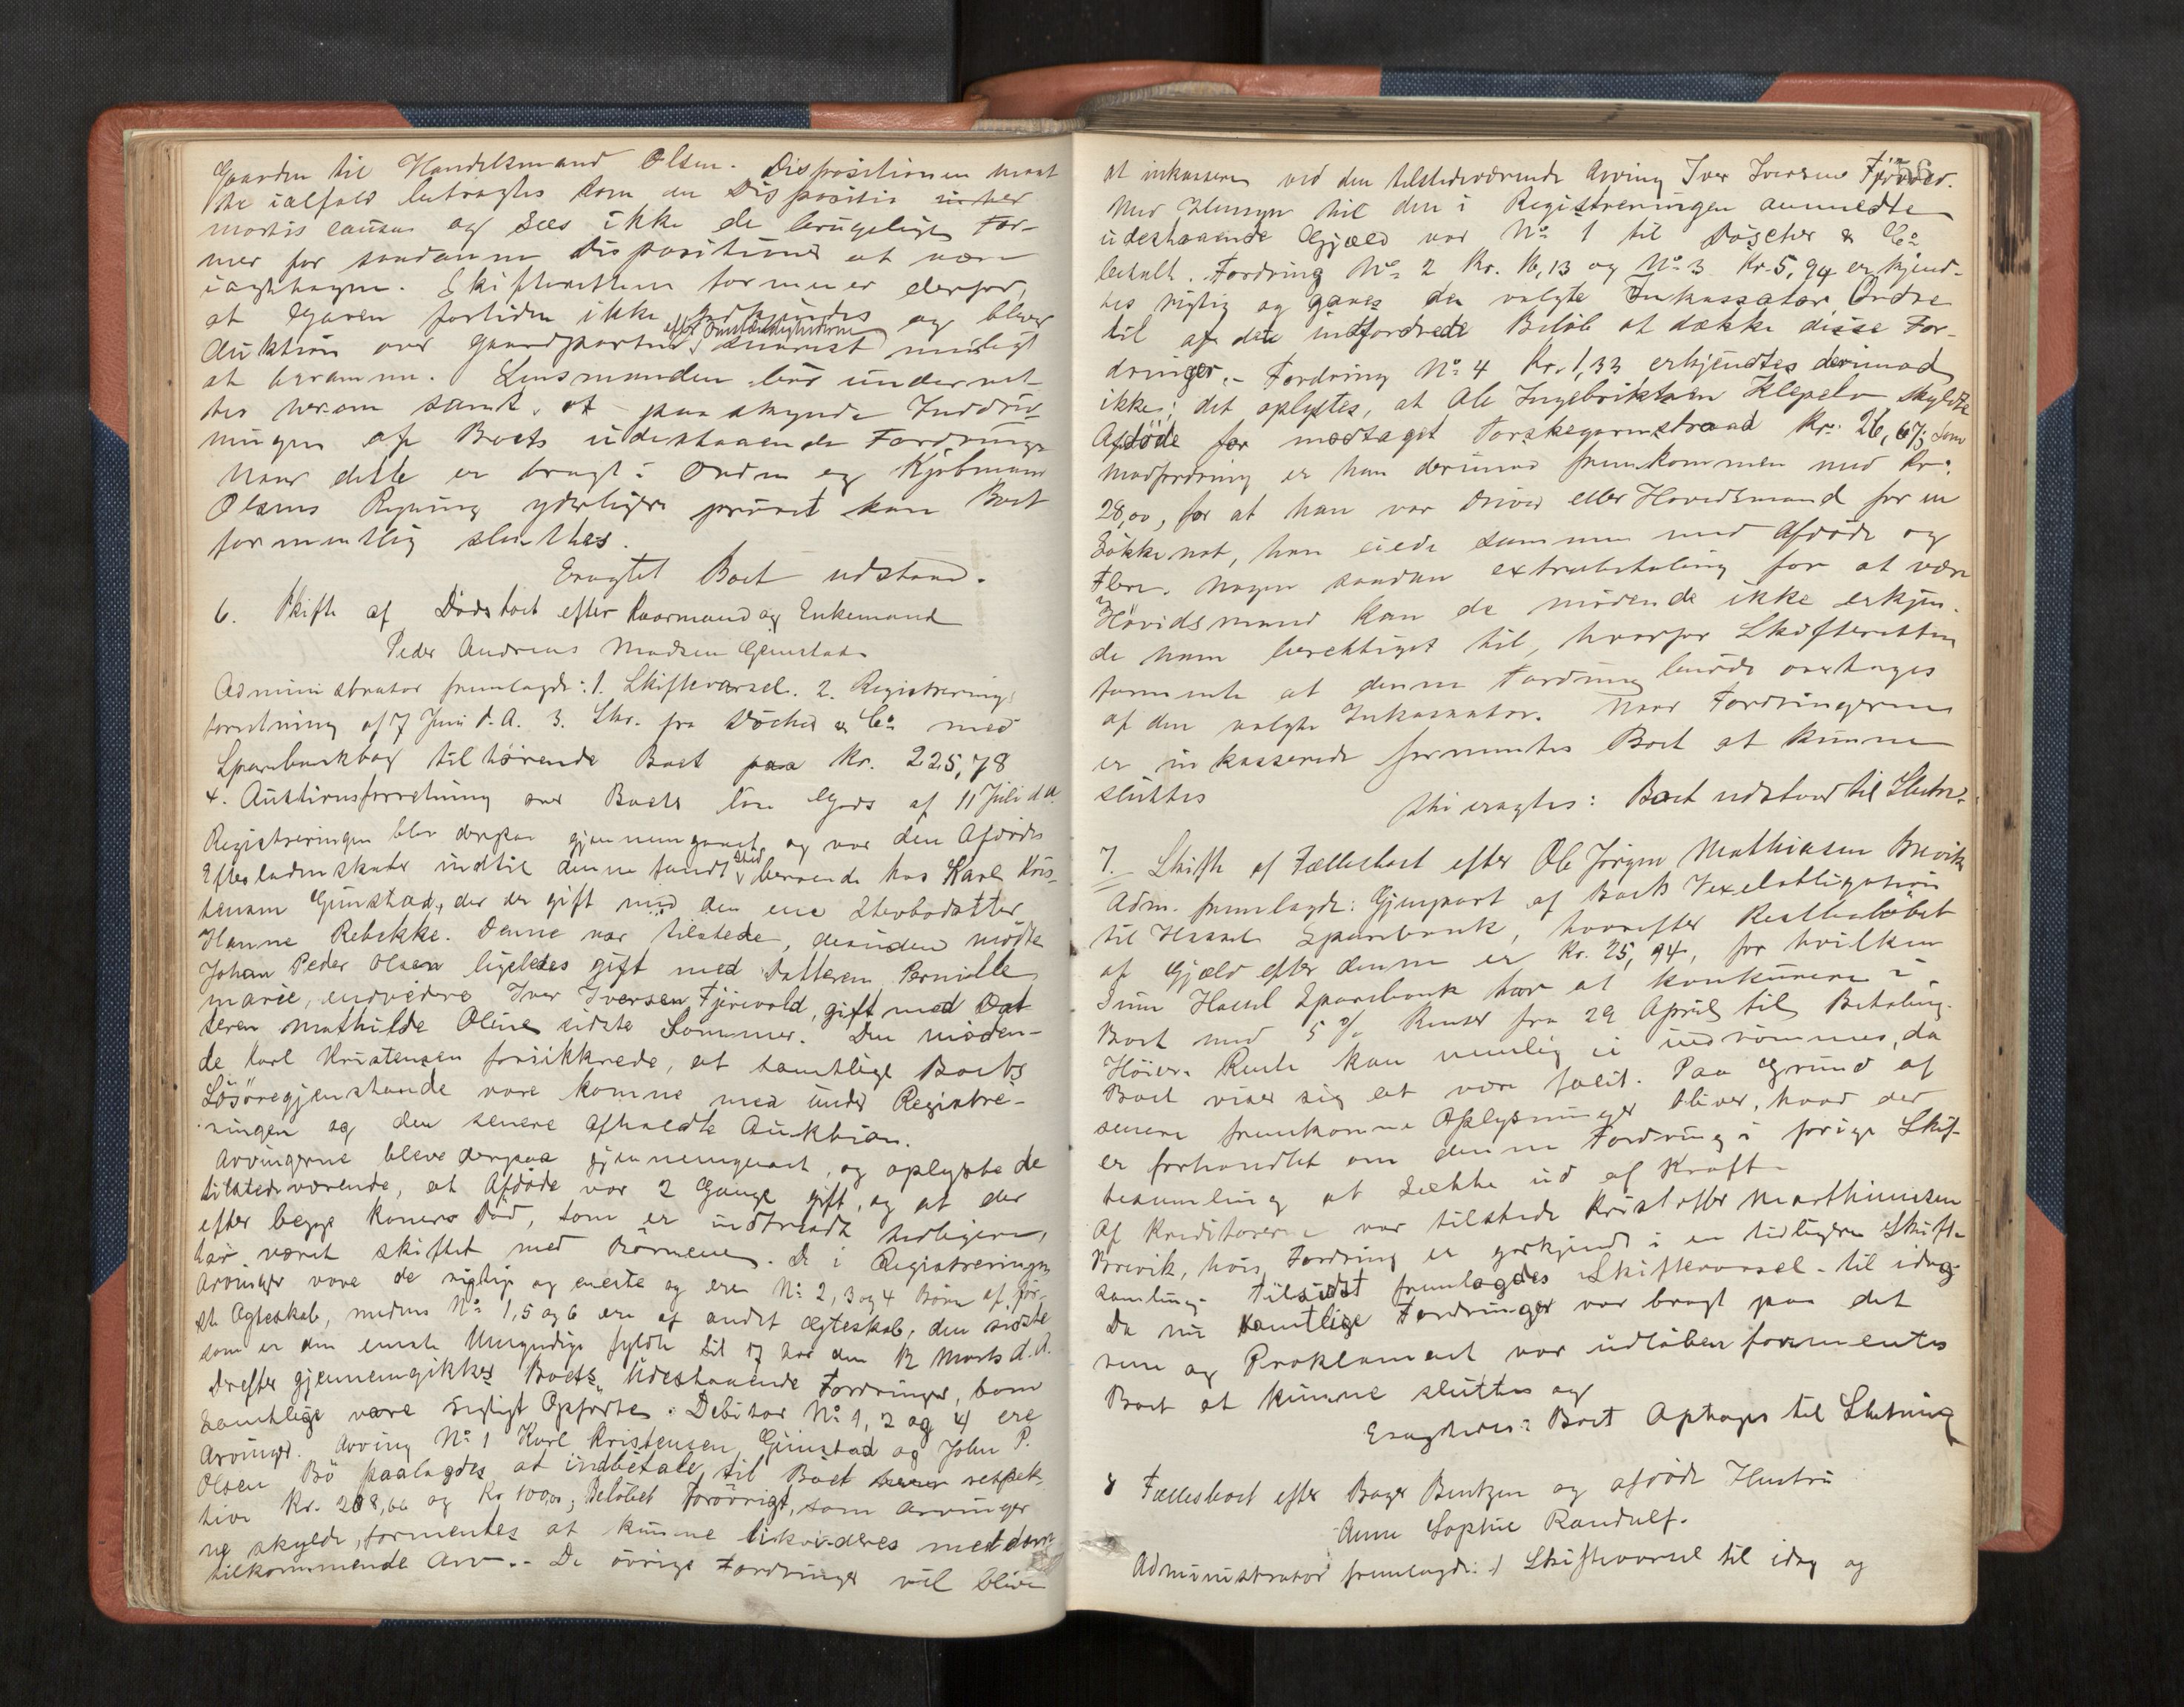 Gaarden til Handelsmand Olsen. Dispositionen maat
te ialfald betragtes som en Dispositio inter
mortis causa og sees ikke de brugelige For-
mer for saadanne Dispositioner at være
iagttagne. Skifteretten formener derfor,
at Gaven fortiden ikke godkjendes og bliver
efter Omstændighederne
Auktion over Gaardparten snarest muligt
at beramme. Lensmanden bør underret-
tes herom samt at paaskynde Inddriv-
ningen af Boets udestaaende Fordringer
Naar dette er bragt i Orden og Kjøbmand
Olsens Regning yderligere prövet kan Boet
formentlig sluttes.
Eragtet Boet udstaar.
6. Skifte af Dödsboet efter Kaarmand og Enkemand
Peder Andreas Madsen Gimstad
Administrator fremlagde: 1. Skiftevarsel. 2. Registrerings
forretning af 7 Juni d. A. 3. Skr. fra Döscher & Co med
Sparebankbog tilhørende Boet paa Kr. 225,78
4. Auktionsforretning over Boets löse Gods af 11 Juli d. A.
Registreringen blev derpaa gjennemgaaet og var den Afdödes
Efterladenskaber indtil denne fandt Sted beroende hos Karl Kris-
tensen Gimstad, der er gift med den ene Stervbodatter
Hanne Rebekke. Denne var tilstede, desuden mödte
Johan Peder Olsen ligeledes gift med Datteren Pernille
Marie, endvidere Iver Iversen Fjærvold, gift med Dat
teren Mathilde Oline sidste Sommer. Den möden-
de Karl Kristensen forsikkrede, at samtlige Boets
Lösöregjenstande vare komne med under Registre-
ringen og den senere afholdte Auktion.
Arvingerne bleve derpaa gjennemgaaet, og oplyste de
tilstedeværende, at Afdöde var 2 Gange gift, og at der
efter begge Koners Död, som er indtraadt tidligere,
har været skiftet med Börnene. De i Registreringen
Arvinger vare de rigtige og eneste og ere No 2, 3 og 4 Börn af för-
ste Ægteskab, medens No 1, 5 og 6 ere af andet Ægteskab, den sidste
som er den eneste Umyndige fyldte til 17 Aar den 12 Marts d. A.
Derefter gjennemgikkes Boets Udestaaende Fordringer, som
samtlige vare rigtigt Opförte. Debitor No 1, 2 og 4 ere
Arvinger. Arving No 1 Karl Kristensen Gimstad og John P.
Olsen Bö paalagdes at indbetale til Boet respek-
tive Kr. 208,66 og Kr 100,00; Beløbet forövrigt, som Arvinger
ne skylde, formentes at kunne likvideres med dem
tilkommende Arv. - De övrige Fordringer vil blive
at inkassere ved den tilstedeværende Arving Iver Iversen Fjærvold.
Med Hensyn til den i Registreringen anmeldte
udestaaende Gjæld var No 1 til Döscher & Co
betalt. Fordring No 2 Kr. 16,13 og No 3 Kr. 5,94 erkjend-
tes rigtig og gaves den valgte Inkassator Ordre
til af det indfordrede Beløb at dække disse For-
dringer. - Fordring No 4 Kr. 1,33 erkjendtes derimod
ikke; det oplystes, at Ole Ingebriktsen Klepelv skyldte
Afdöde for modtaget Torskegarnstraad Kr. 26,67; som
Modfordring er han derimod fremkommen med Kr.
28,00, for at han var Driver eller Hovedsmand for en
Sökkenot, han eiede sammen med Afdöde og
Flere. Nogen saadan extrabetaling for at være
Hövidsmand kan de mödende ikke erkjen-
de ham berettiget til, hvorfor Skifteretten
formente at denne Fordring burde overtages
af den valgte Inkassator. Naar Fordringerne
er inkasserede formentes Boet at kunne
sluttes
Thi eragtes: Boet udstaar til Slutn.
7. Skifte af Fællesboet efter Ole Jörgen Mathiasen Brevik
Adm. fremlagde: Gjenpart af Boets Vexelobligation
til Hassel Sparebank, hvorefter Restbelöbet
af Gjæld efter denne er Kr. 25,94, for hvilken
Sum Hassel Sparebank har at konkurrere i
Boet med 5 % Renter fra 29 April til Betaling.
Höiere Rente kan nemlig ei indrömmes, da
Boet viser sig at være falit. Paa Grund af
senere fremkomne Oplysninger bliver, hvad der
er forhandlet om denne Fordring i forige Skif-
tesamling at sætte ud af Kraft.
Af Kreditorerne var tilstede Kristoffer Marthinusen
Brevik, hvis Fordring er godkjendt i en tidligere Skifte-
samling. Tilsidst fremlagdes Skiftevarsel til idag.
Da nu samtlige Fordringer var bragt paa det
rene og Proklamaet var udlöben formentes
Boet at kunne sluttes og
Eragtedes: Boet Optages til Slutning
8 Fællesboet efter Bager Bentzen og afdöde Hustru
Anne Sophie Randulf.
Administrator fremlagde: 1 Skiftevarsel til idag og